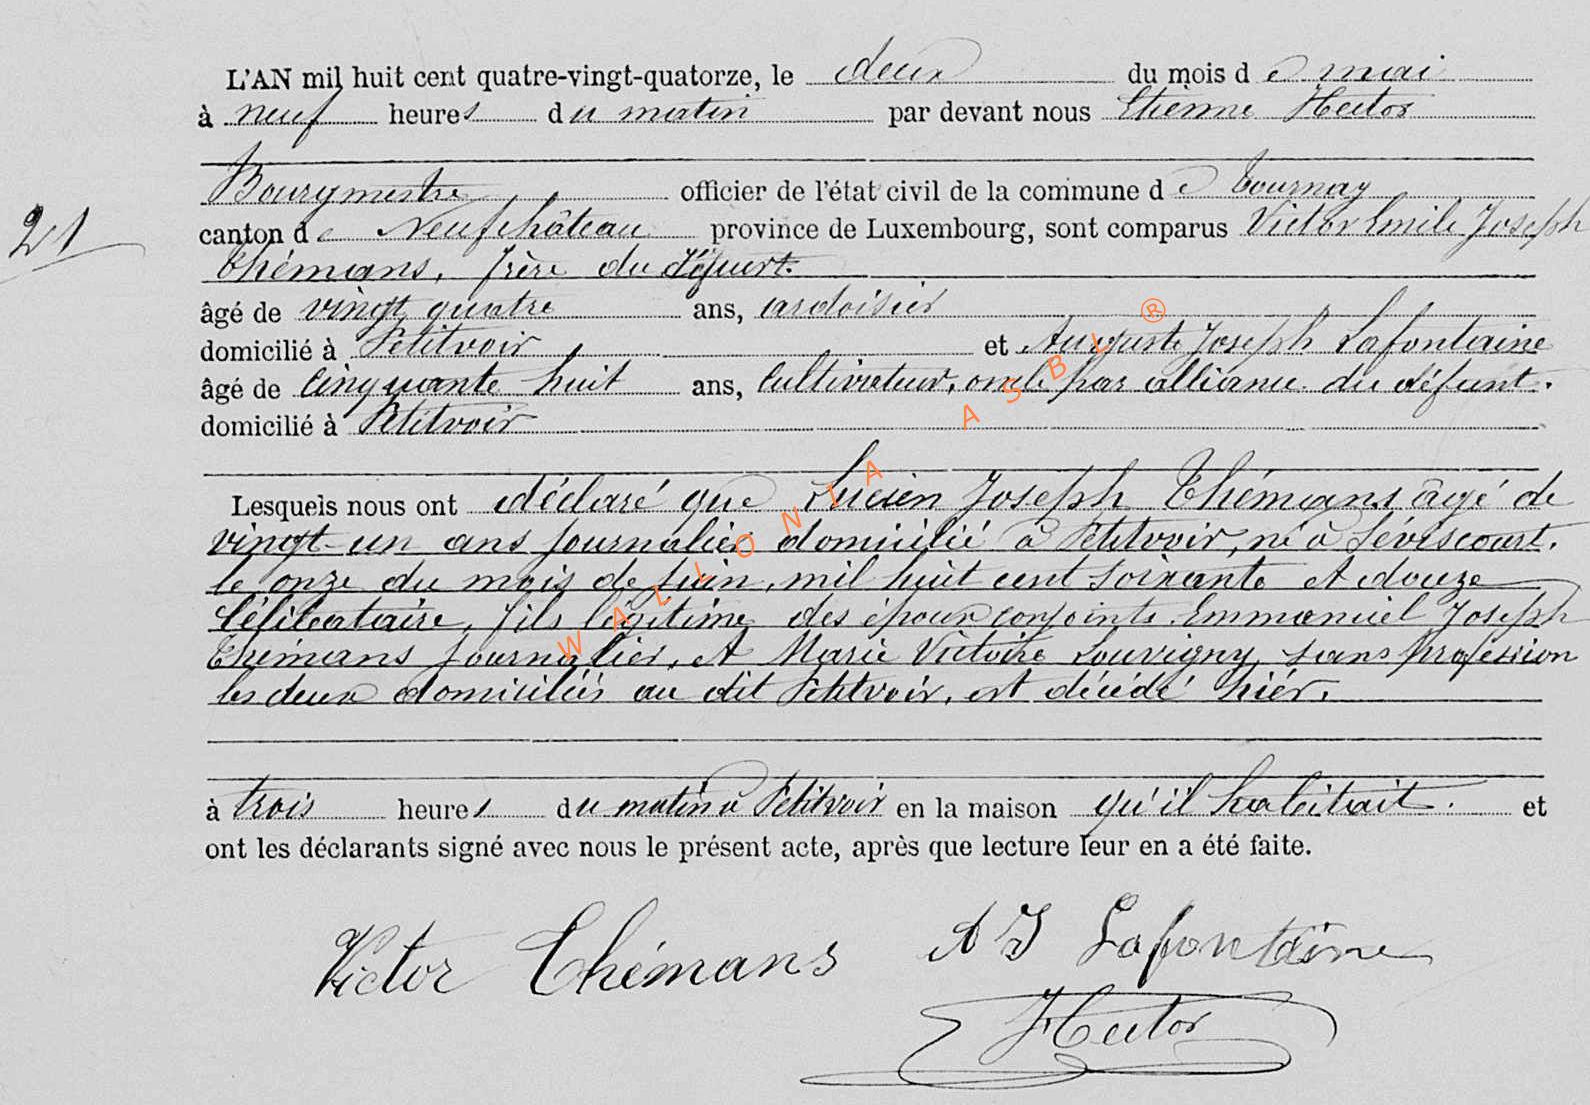 L'AN mil huit cent quatre-vingt-quatorze, le deux du mois de mai
à neuf heures du matin par devant nous Etienne Hector
Bourgmestre officier de l'état civil de la commune de Tournay
21
canton de Neufchâteau province de Luxembourg, sont comparus Victor Emile Joseph
Thémans, frère du défunt.
âgé de vingt quatre ans, ardoisier
domicilié à Petitvoir et Auguste Joseph Lafontaine
âgé de cinquante huit ans, cultivateur, oncle par alliance du défunt.
domicilié à Petitvoir
Lesquels nous ont déclaré que Lucien Joseph Thémans âgé de
vingt-un ans journalier domicilié à Petitvoir, né à Séviscourt.
le onze du mois de juin, mil huit cent soixante et douze
Célibataire, fils légitime des époux conjoints Emmanuel Joseph
Thémans journalier, et Marie Victoire Louvigny sans profession
les deux domiciliés au dit Petitvoir, est décédé hier.
à trois heures du matin à Petitvoir en la maison qu'il habitait. et
ont les déclarants signé avec nous le présent acte, après que lecture leur en a été faite.
Victor Thémans A J Lafontaine
Hector
WALLONIA ASBL ®